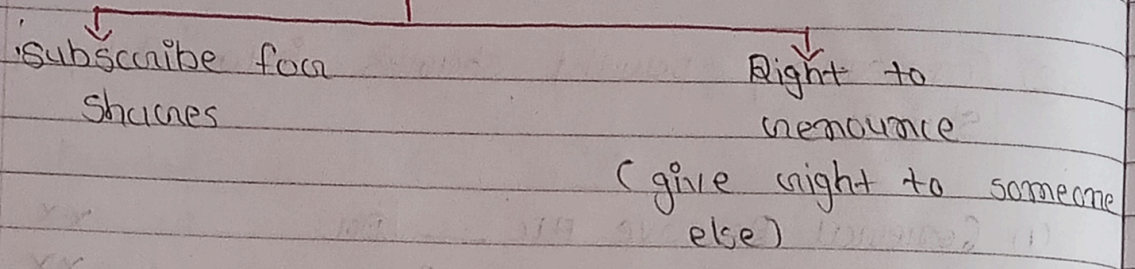 Subscribe for
Shares
Right to
renounce
(give right to someone
else)